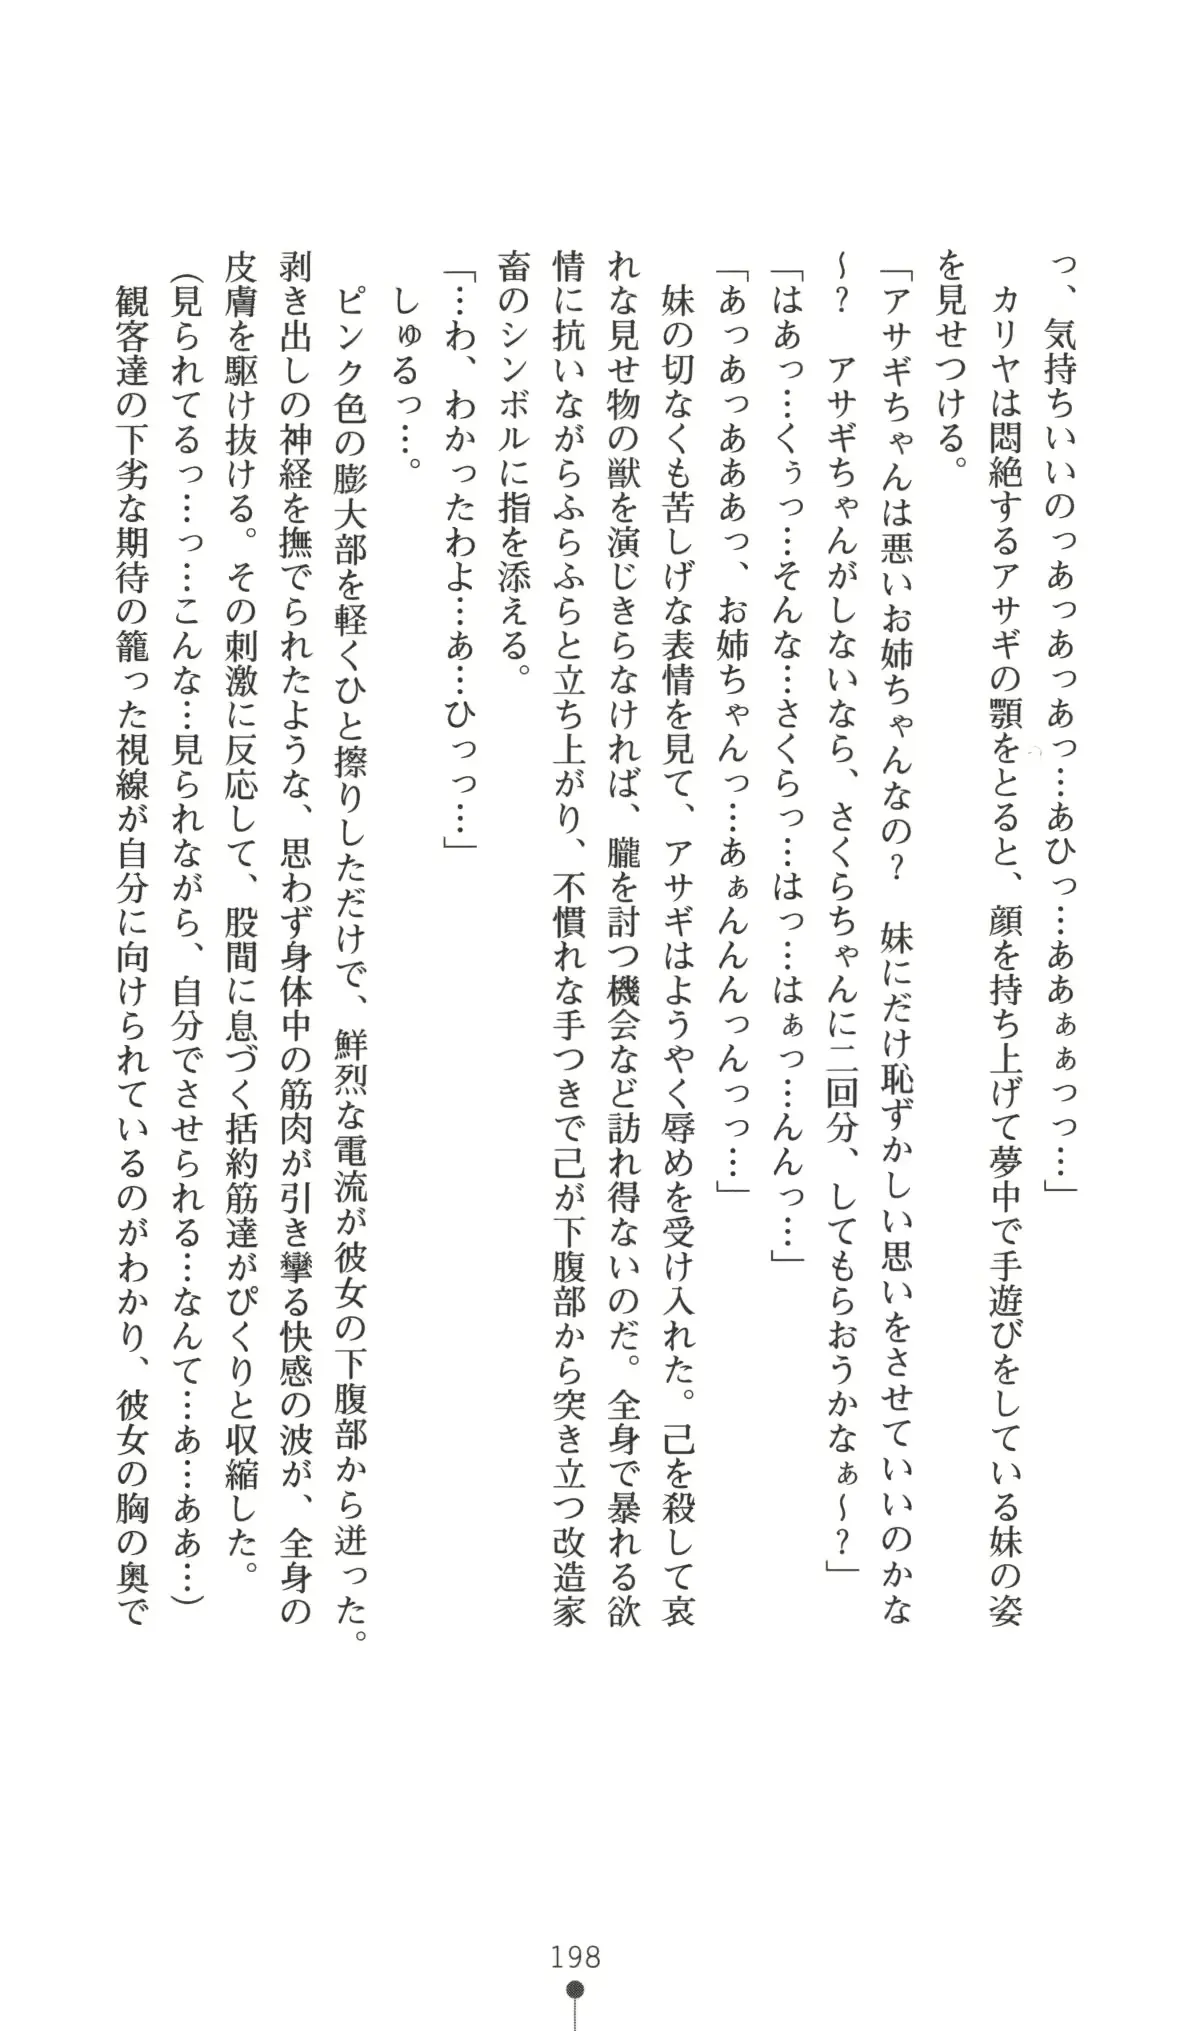 っ、気持ちいいのっあっあっあっ…あひっ…ああぁぁっっ…」
カリヤは悶絶するアサギの顎をとると、顔を持ち上げて夢中で手遊びをしている妹の姿
を見せつける。
「アサギちゃんは悪いお姉ちゃんなの？　妹にだけ恥ずかしい思いをさせていいのかな
～？　アサギちゃんがしないなら、さくらちゃんに二回分、してもらおうかなぁ～？」
「はあっ…くぅっ…そんな…さくらっ…はっ…はぁっ…んんっ…」
「あっあっあああっ、お姉ちゃんっ…あぁんんんっんっっ…」
妹の切なくも苦しげな表情を見て、アサギはようやく辱めを受け入れた。己を殺して哀
れな見せ物の獣を演じきらなければ、朧を討つ機会など訪れ得ないのだ。全身で暴れる欲
情に抗いながらふらふらと立ち上がり、不慣れな手つきで己が下腹部から突き立つ改造家
畜のシンボルに指を添える。
「…わ、わかったわよ…ぁ…ひっっ…」
しゅるっ…。
ピンク色の膨大部を軽くひと擦りしただけで、鮮烈な電流が彼女の下腹部から迸った。
剥き出しの神経を撫でられたような、思わず身体中の筋肉が引き攣る快感の波が、全身の
皮膚を駆け抜ける。その刺激に反応して、股間に息づく括約筋達がぴくりと収縮した。
（見られてるっ…っ…こんな…見られながら、自分でさせられる…なんて…あ…ああ…）
観客達の下劣な期待の籠った視線が自分に向けられているのがわかり、彼女の胸の奥で
198